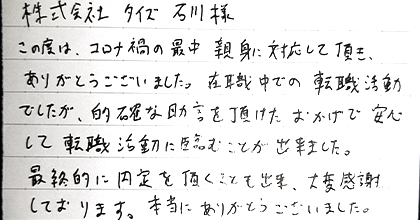 株式会社 タイズ 石川様
この度は、コロナ禍の最中 親身に対応して頂き、
ありがとうございました。在職中での 転職活動
でしたが、的確な助言を頂けた おかげで 安心
して 転職活動に臨むことが出来ました。
最終的に内定を頂くことも出来、大変感謝
しております。本当にありがとうございました。